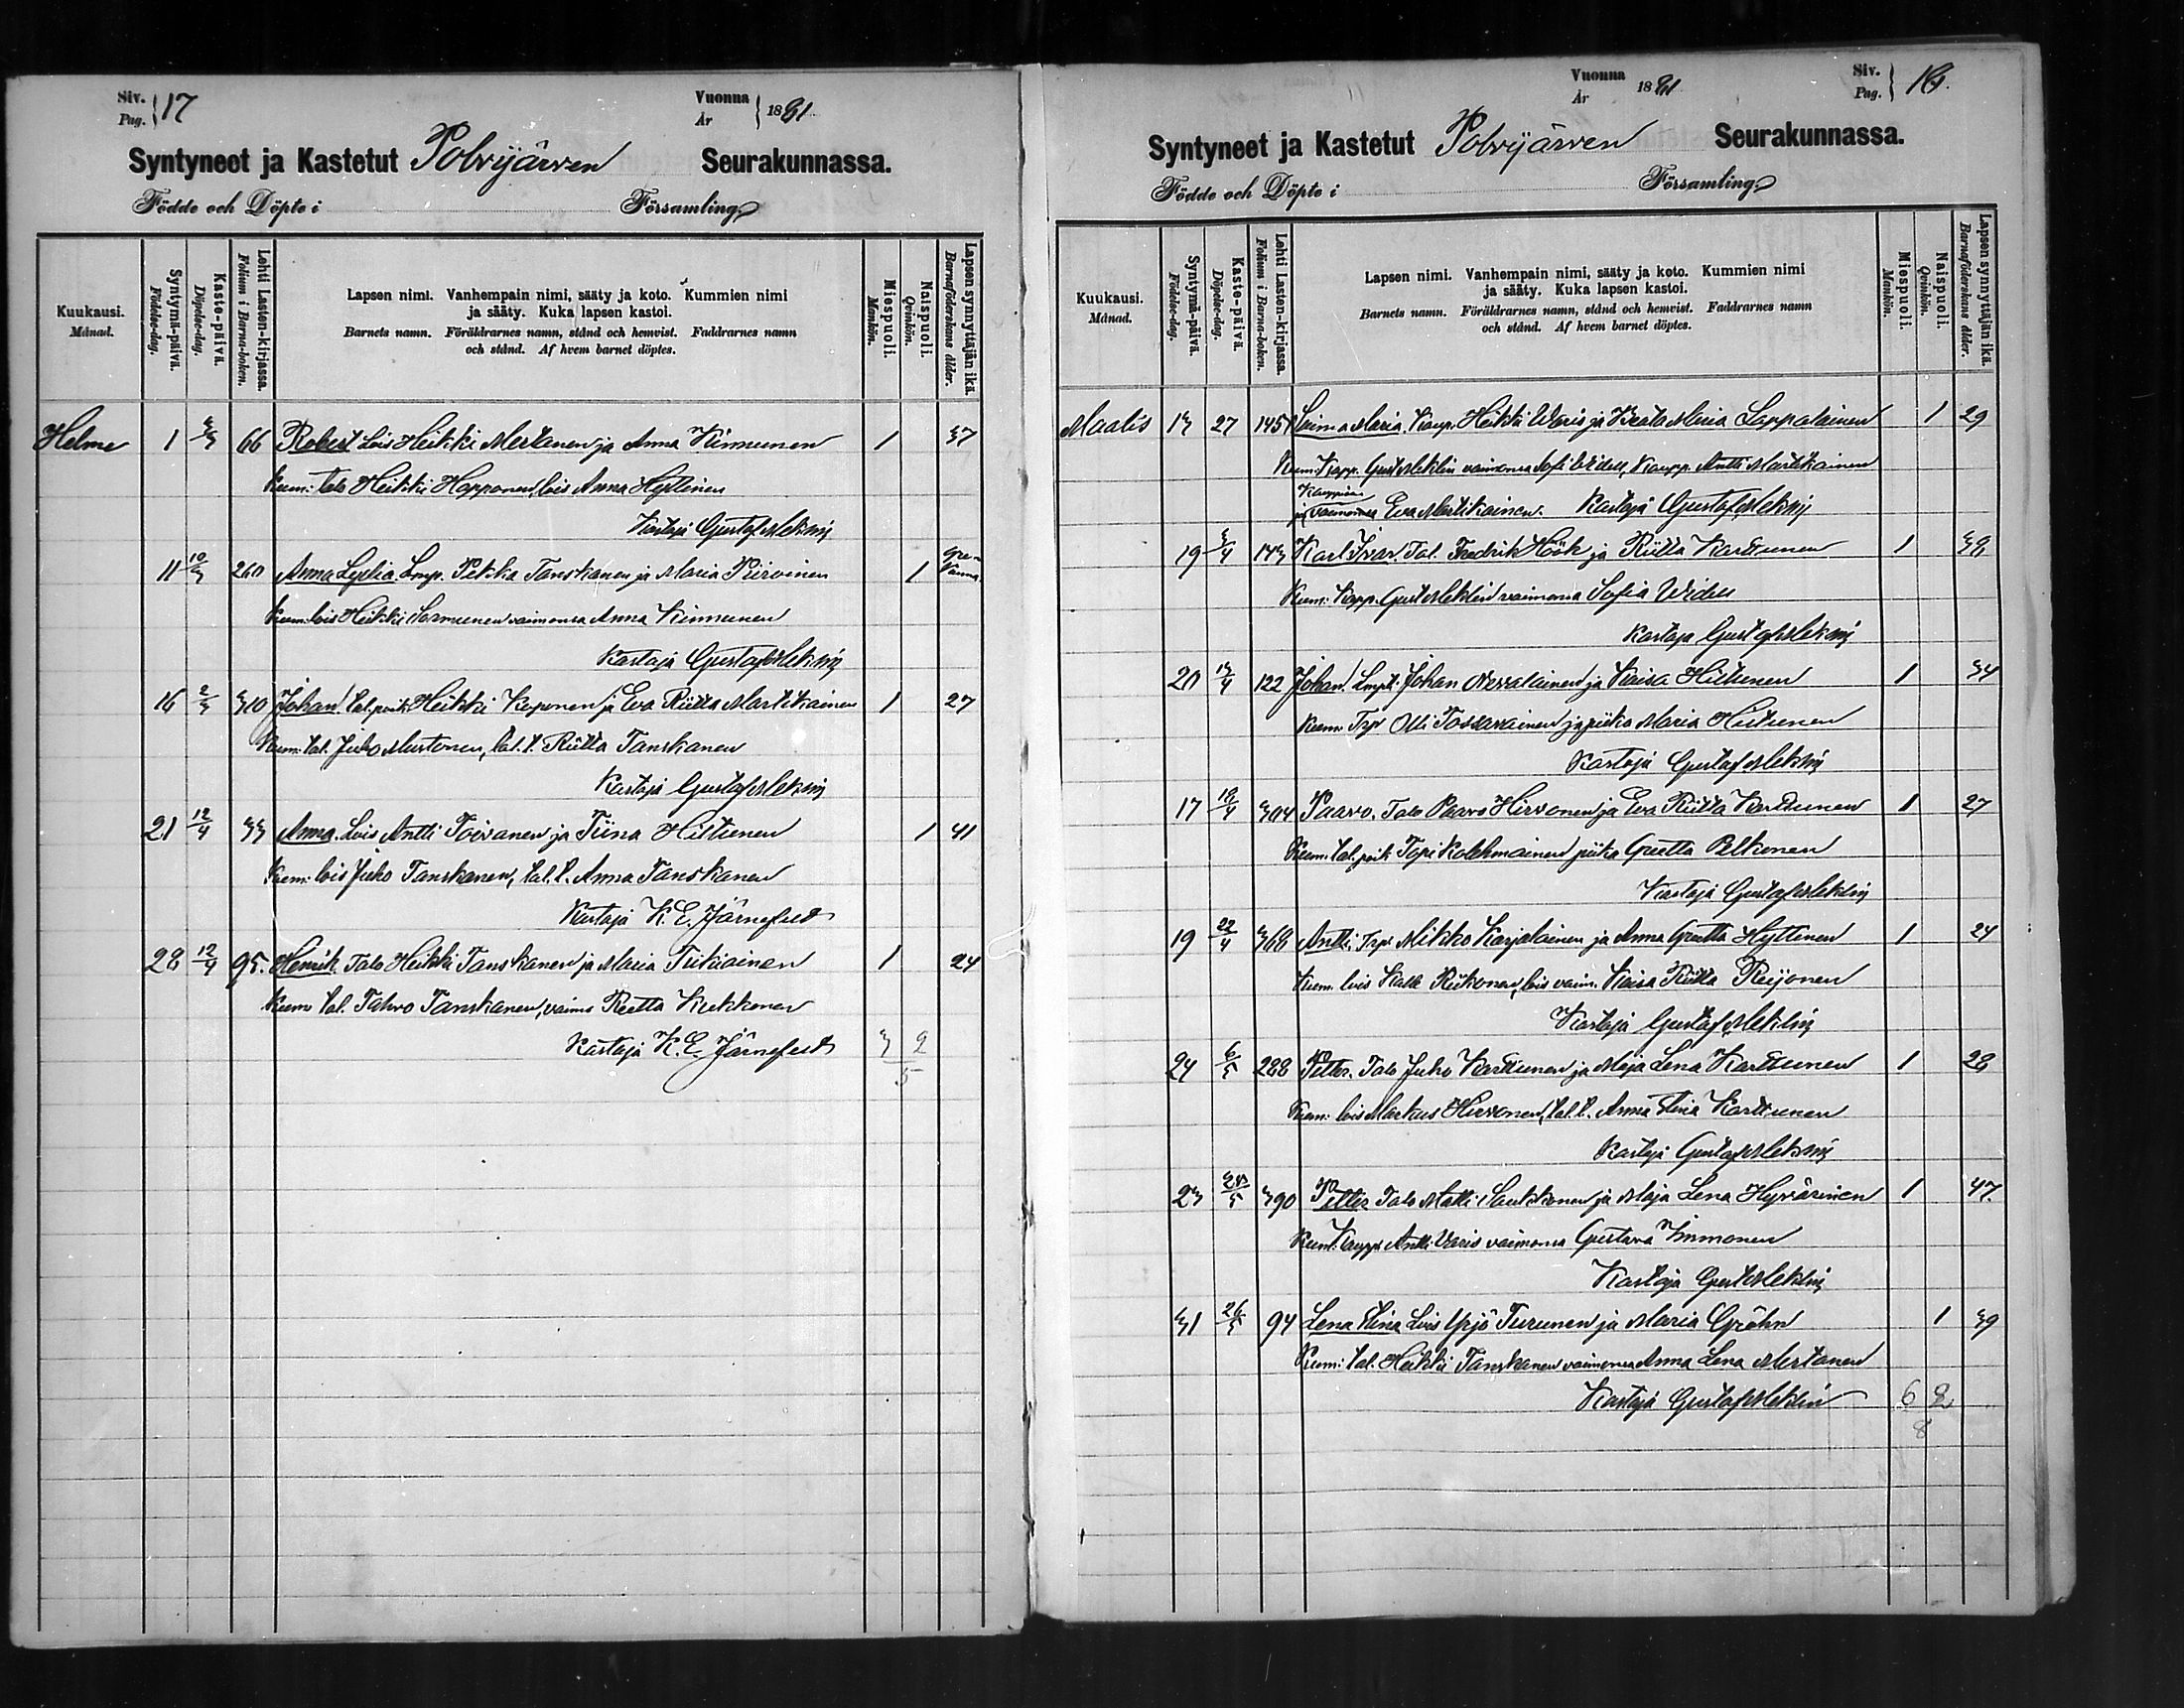 Siv. Pag. } 17
Vuonna År } 1881.
Syntyneet ja Kastetut Polvijärven Seurakunnassa.
Födde och Döpte i Församling.
Kuukausi. Månad.
Syntymä-päivä. Födelse-dag.
Kaste-päivä. Döpelse-dag.
Lehti Lasten-kirjassa. Folium i Barna-boken.
Lapsen nimi. Vanhempain nimi, sääty ja koto. Kummien nimi
ja sääty. Kuka lapsen kastoi.
Barnets namn. Föräldrarnes namn, stånd och hemvist. Faddrarnes namn
och stånd. Af hvem barnet döptes.
Miespuoli. Mankön.
Naispuoli. Qvinkön.
Lapsen synnyttäjän ikä. Barnaföderskans ålder.
Helme 1 66 Robert Lois Heikki Mertanen ja Anna Kinnunen 1 37
Kum: talo Heikki Happonen, lois Anna Hyttinen
Kastaja Gustaf Meklin
11 10/3 260 Anna Lydia. Lmp. Pekka Tanskanen ja Maria Piiroinen 1
Kum: lois Heikki Sormunen vaimonsa Anna Kinnunen
Kastaja Gustaf Meklin
16 2/3 310 Johan. tal.poik. Heikki Kaponen ja Eva Riitta Martikainen 1 27
Kum: tal. Juho Mustonen, tal. t. Riitta Tanskanen
Kastaja Gustaf Meklin
21 12/4 33 Anna. Lois Antti Toivanen ja Tiina Hiltunen 1 41
Kum: lois Juho Tanskanen, tal. t. Anna Tanskanen
Kastaja K. E. Järnefelt
28 12/4 95. Henrik Talo Heikki Tanskanen ja Maria Tiikiainen 1 24
Kum tal. Tahvo Tanskanen, vaimo Reetta Kukkonen
Kastaja K. E. Järnefelt 3 2
5
Vuonna År 1881
Siv. Pag. } 18.
Syntyneet ja Kastetut Polvijärven Seurakunnassa.
Födde och Döpte i Församling.
Kuukausi. Månad.
Syntymä-päivä. Födelse-dag.
Kaste-päivä. Döpelse-dag.
Lehti Lasten-kirjassa. Folium i Barna-boken.
Lapsen nimi. Vanhempain nimi, sääty ja koto. Kummien nimi
ja sääty. Kuka lapsen kastoi.
Barnets namn. Föräldrarnes namn, stånd och hemvist. Faddrarnes namn
och stånd. Af hvem barnet döptes.
Miespuoli. Mankön.
Naispuoli. Qvinkön.
Lapsen synnyttäjän ikä. Barnaföderskans ålder.
Maalis 13 27 Maria. Kaup. Heikki Waris ja Beata Maria Lappalainen 1 29
Kum: Kapp. Gust Meklin vaimonsa Sofi Widell, Kaupp. Antti Martikainen
ja vaimonsa Eva Martikainen. Kastaja Gustaf Meklin
19 3/4 143 Karl Ivar. Tal. Fredrik Höök ja Riitta Karttunen 1 38
Kum: Kapp. Gust Meklin vaimonsa Sofia Widell
Kastaja Gustaf Meklin
20 13/4 122 Johan. Lmpi. Johan Nevalainen ja Kaisa Hiltunen 1 34
Kum: Trp Olli Tossavainen ja piika Maria Hiltunen
Kastaja Gustaf Meklin
17 18/4 304 Paavo. Talo Paavo Hirvonen ja Eva Riitta Karttunen 1 27
Kum: tal. poik Tapi Kolehmainen piika Greetta Pelkonen
Kastaja Gustaf Meklin
19 22/4 368 Antti. Trpr Mikko Karjalainen ja Anna Greetta Hyttinen 1 24
Kum. lois Kalle Riikonen, lois vaim. Kaisa Riitta Reijonen
Kastaja Gustaf Meklin
24 6/5 288 Petter. Talo Juho Karttunen ja Maja Lena Karttunen 1 28
Kum: lois Markus Hirvonen, tal. t. Anna Stina Karttunen
Kastaja Gustaf Meklin
23 390 Petter Talo Matti Saukkonen ja Maja Lena Hyvärinen 1 47.
Kum: Antti Varis vaimonsa Gustava Immonen
Kastaja Gust Meklin
31 26/5 94 Lena Stina Lois Yrjö Turunen ja Maria Gröhn 1 39
Kum: tal. Heikki Tanskanen vaimonsa Anna Lena Mertanen
Kastaja Gustaf Meklin 6 2
8